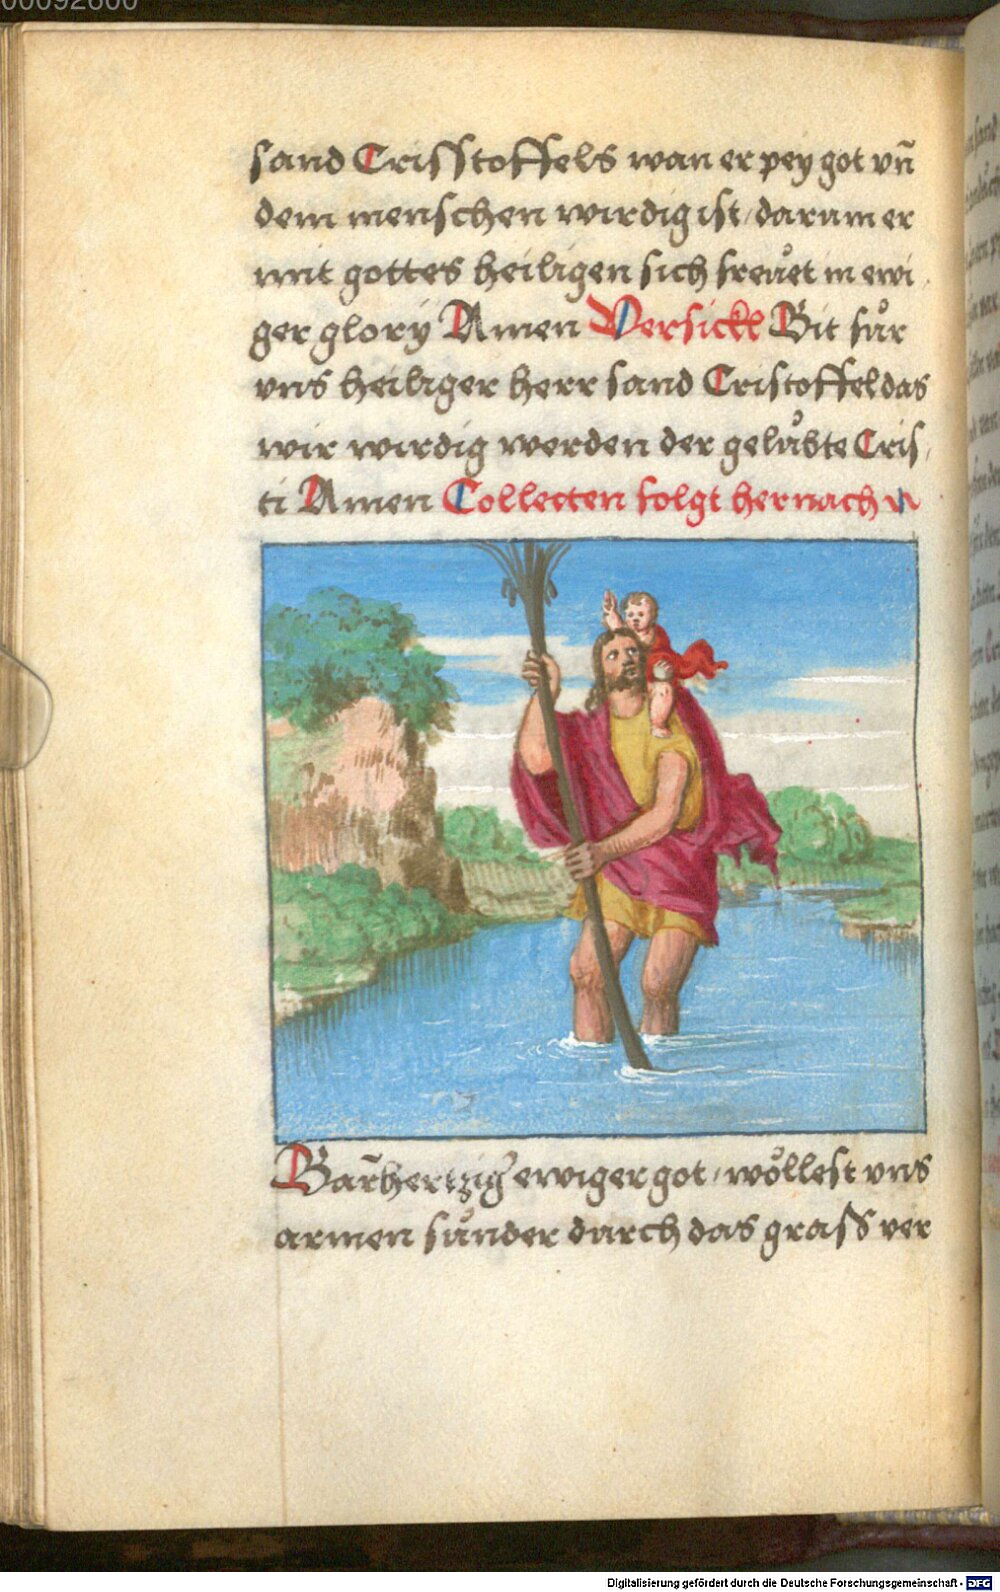 00092600
sand Crisstoffels wan er pey got vn̄
dem menschen wirdig ist / darum er
mit gottes heiligen sich freuͦet in ewi
ger glory Amen Versickl Bit fuͦr
vns heiliger herr sand Cristoffel das
wir wirdig werden der geluͦbte Cris
ti Amen Collecten folgt hernach
Barm̄hertzig ewiger got / woͤllest vns
armen suͦnder durch das grass ver
Digitalisierung gefördert durch die Deutsche Forschungsgemeinschaft - DFG